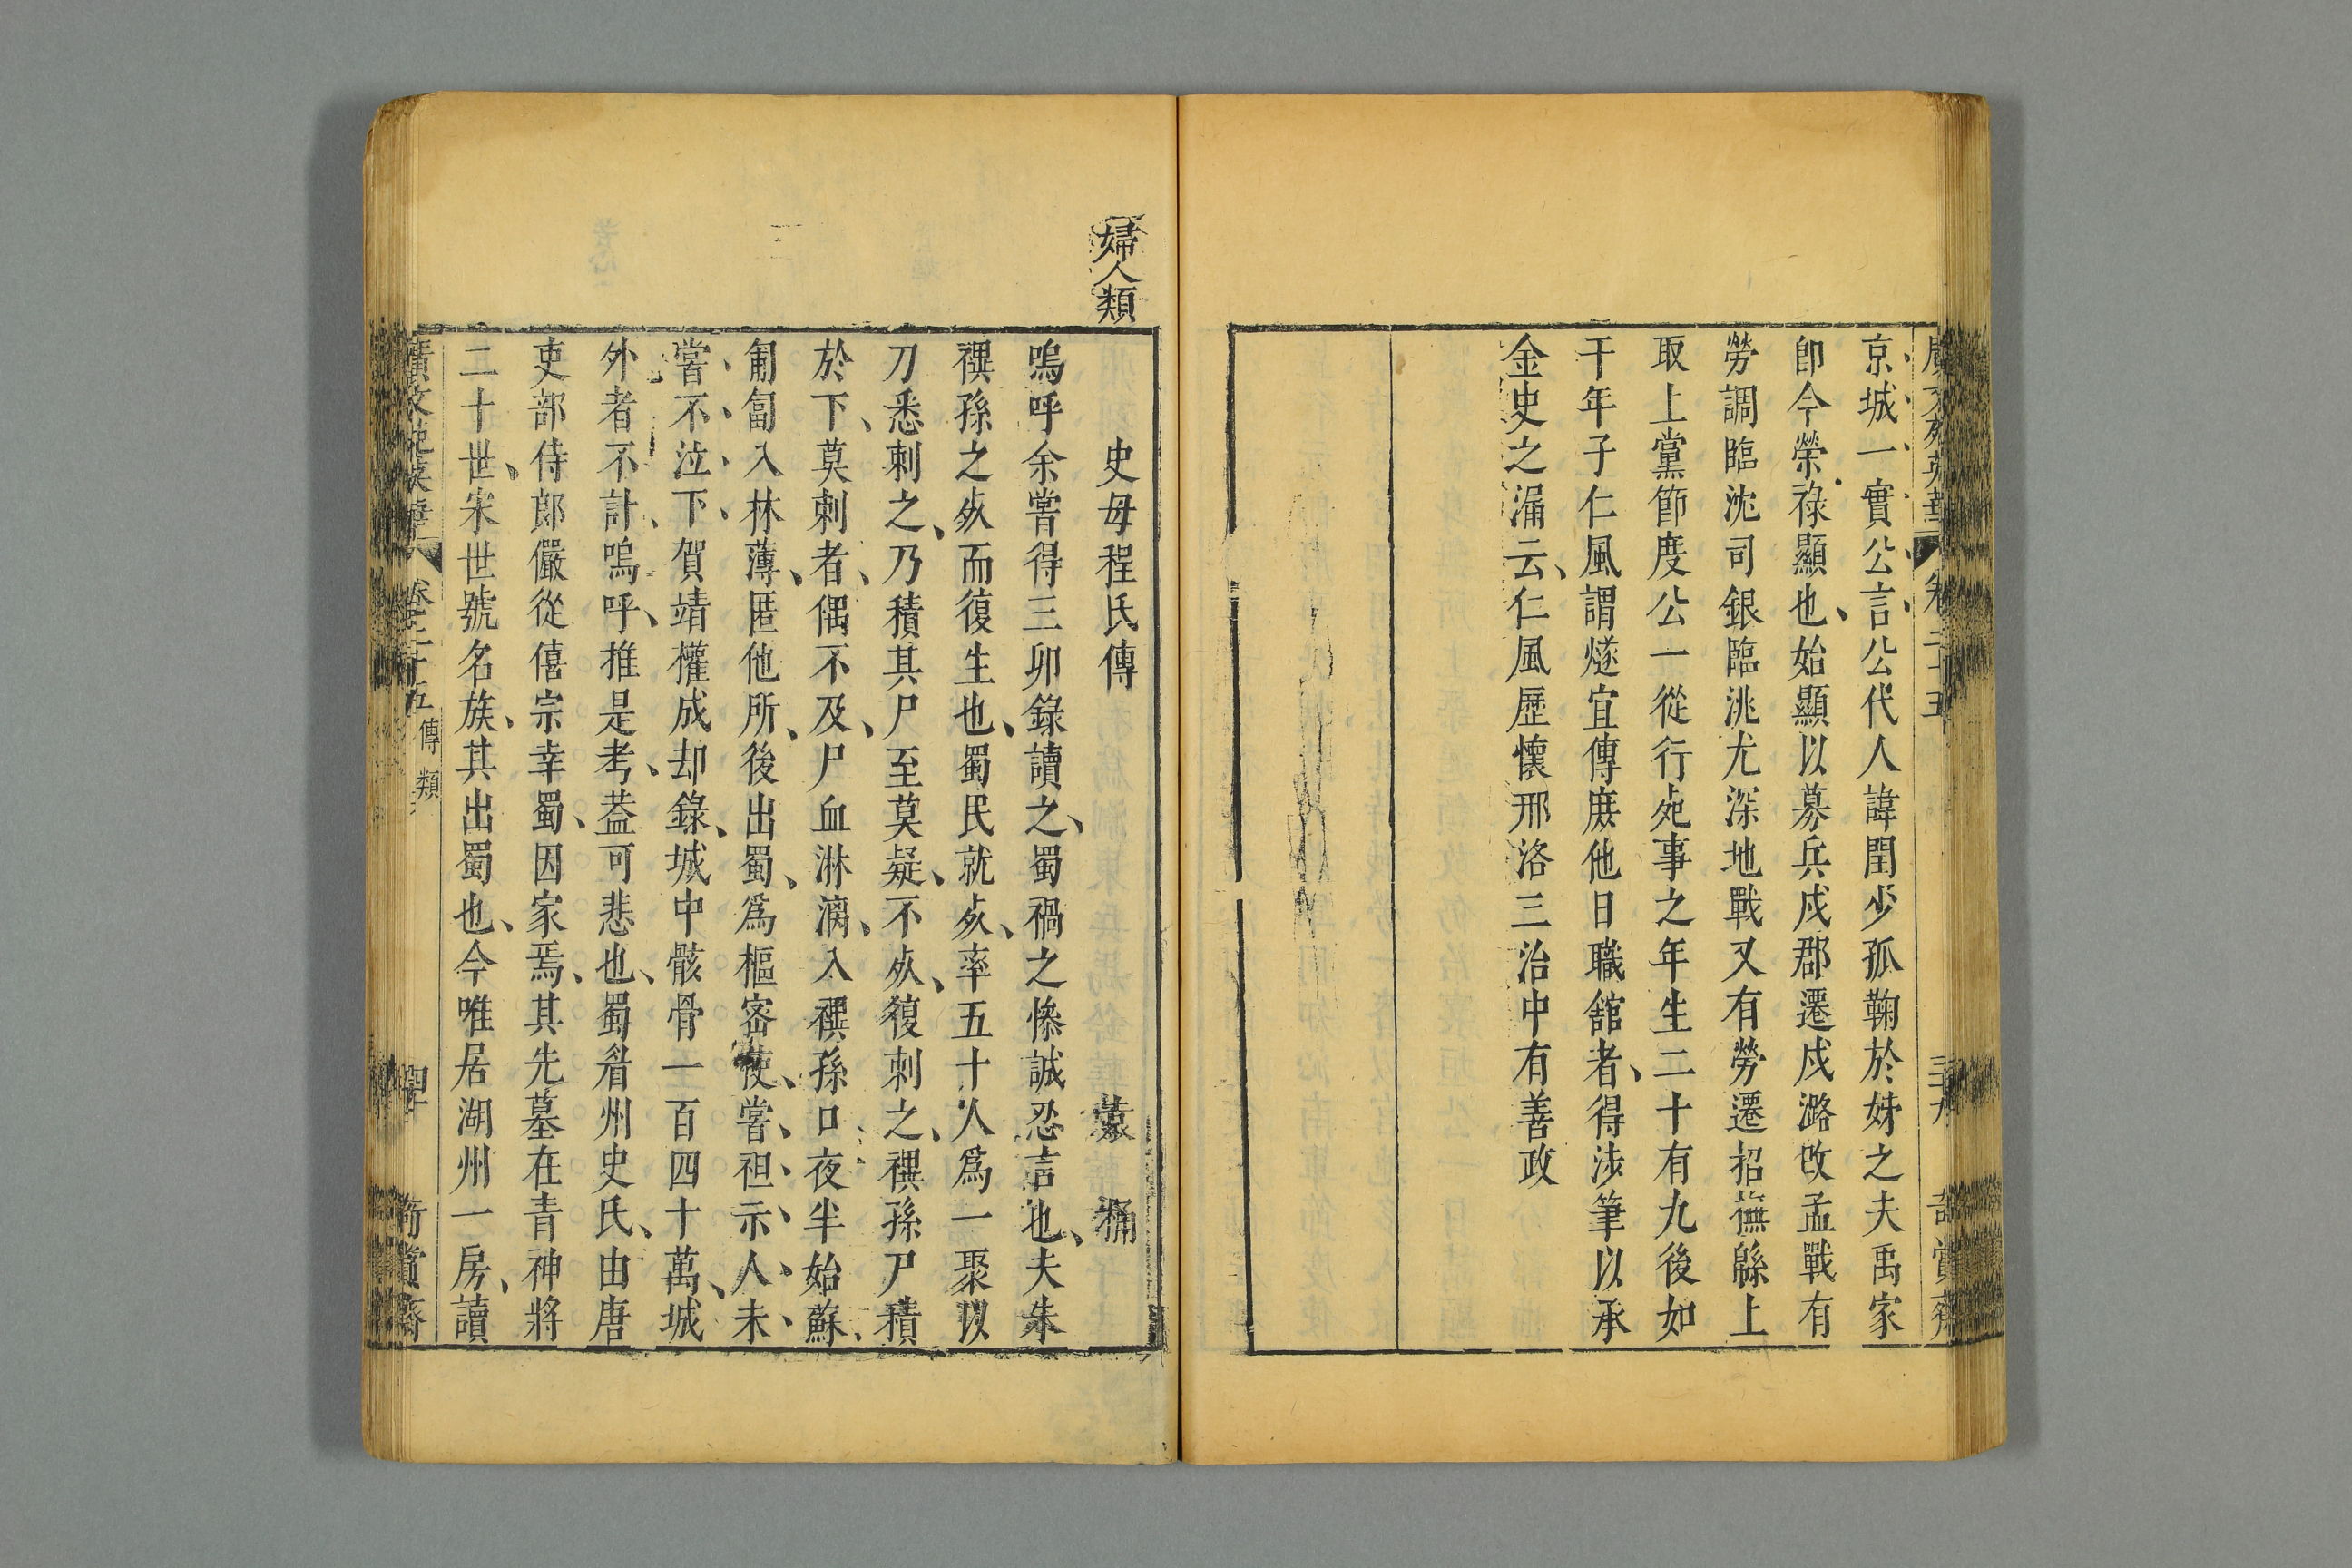 京城一實公言公代人諱閏少孤鞠於姊之夫禹家
卽今榮祿顯也始顯以募兵戍郡遷戍潞改孟戰有
勞調臨沈司銀臨洮尤深地戰又有勞遷招撫縣上
取上黨節度公一從行死事之年生二十有九後如
干年子仁風謂燧宜傳庶他日職舘者得涉筆以承
金史之漏云仁風歷懷邢洛三治中有善政
婦人類
史母程氏傳
嗚呼余嘗得三卯錄讀之蜀禍之慘誠忍言也夫朱
禩孫之死而復生也蜀民就死率五十人爲一聚以
刀悉刺之乃積其尸至莫疑不死復刺之禩孫尸積
於下莫刺者偶不及尸血淋漓入禩孫口夜半始蘇
匍匐入林薄匿他所後出蜀爲樞密使嘗袒示人未
嘗不泣下賀靖權成却錄城中骸骨一百四十萬城
外者不計嗚呼推是考葢可悲也蜀眉州史氏由唐
吏部侍郎儼從僖宗幸蜀因家焉其先墓在青神將
二十世宋世號名族其出蜀也今唯居湖州一房讀
卷二十五 傳類